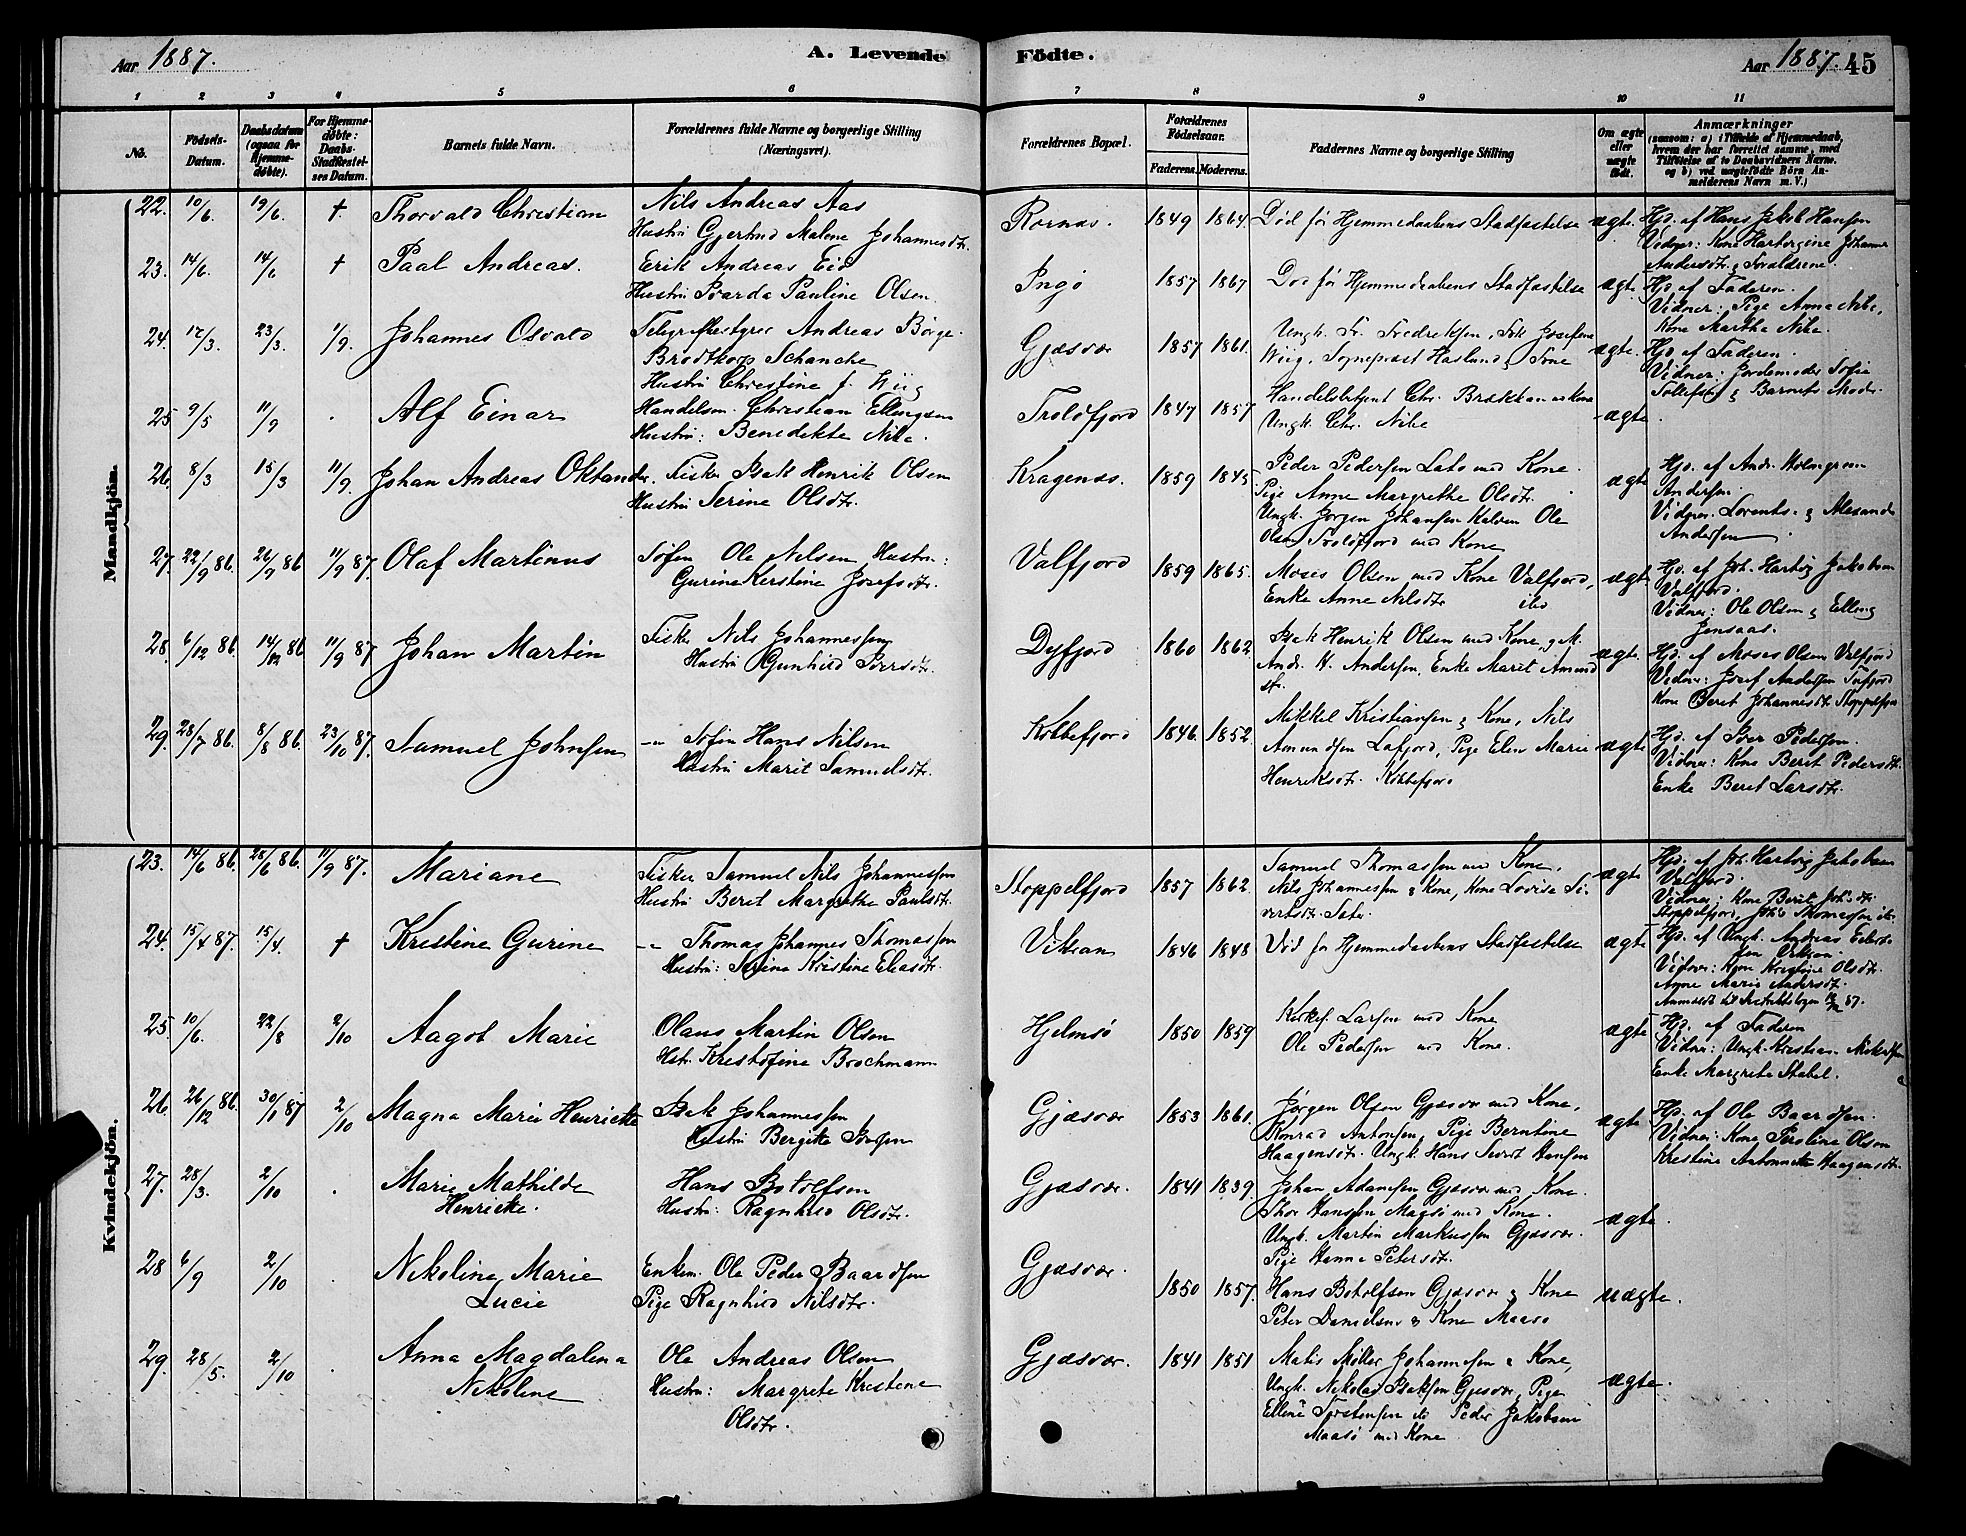 Aar 1887.
A. Levende Födte.
Aar 1887.
45
1 2 3 4 5 6 7 8 9 10 11
No.
Födsels-Datum.
Daabsdatum (ogsaa for Hjemmedøbte).
For Hjemmedøbte: Daabs-Stadfæstelses Datum.
Barnets fulde Navn.
Forældrenes fulde Navne og borgerlige Stilling (Næringsvei).
Forældrenes Bopæl.
Forældrenes Födselsaar.
Faderens. Moderens.
Faddernes Navne og borgerlige Stilling
Om ægte eller uægte født.
Anmærkninger
(saasom: a) i Tilfælde af Hjemmedaab, hvem der har forrettet samme, med Tilføielse af to Daabsvidners Navne. og b) ved uægtefødte Börn Anmelderens Navn m. V.)
Mandkjön.
22. 10/6. 19/6. † Thorvald Christian
Nils Andreas Aas
Hustru Gjertrud Malene Johannesdtr.
Rornæs. 1849 1864. Død før Hjemmedaabens Stadfæstelse ægte.
Hjd. af Hans Jakob Hansen
Vidner: Kone Hartvigine Johanne
Andersdtr. & Forældrene.
23. 14/6. 14/6 † Paal Andreas.
Erik Andreas Eid
Hustru Pauline Olsen.
Ingö 1857 1867 Død før Hjemmedaabens Stadfæstelse ægte
Hjd. af Faderen.
Vidner: Pige Anna
Kone Martha
24. 12/3. 23/3. 11/9. Johannes Osvald
Telegrafbestyrer Andreas Børge
Brodtkorp Schancke
Hustru Christine f. Wiig
Gjæsvær 1857 1861.
Ungk. Fr. Fredriksen, Frk Josefine
Wiig, Sognepræst Haslund & Frue
ægte.
Hjd. af Faderen.
Vidner: Jordemoder Sofie
Tollefsen & Barnets Moder.
25 9/5 11/9 . Alf Einar
Handelsm. Christian Ellingsen
Hustru: Benedikte
Troldfjord 1847 1857
Handelsbetjent Chr. Brækkan m Kone
Ungk. Chr.
ægte.
26. 8/3 15/3 11/9. Johan Andreas Oktander.
Fisker Isak Henrik Olsen
Hustru Serine Olsdtr.
Kragenæs. 1859 1845
Peder Pedersen Lato med Kone.
Pige Anne Margrethe Olsdtr.
Ungk. Jørgen Johansen Kalven Ole
Olsen Troldfjord med Kone
ægte
Hjd. af Andr. Holmgren
Andersen.
Vidner: Lorents & Alexander
Andersen
27. 22/9 86. 26/9 86 11/9 87. Olaf Martinus
Søfin Ole Nilsen Hustru:
Gurina Kerstine Josefsdtr.
Valfjord 1859 1865.
Moses Olsen med Kone Valfjord,
Enke Anne Nilsdtr ibd
ægte
Hjd. af Joh. Hartvig Jakobsen
Valfjord.
Vidner: Ole Olsen & Elling
Jonsaas.
28. 6/12 86. 14/12 86 11/9 87 Johan Martin
Fisker Nils Johannessen
Hustru Gunhild Persdtr.
Dyfjord 1860 1862.
Isak Henrik Olsen med Kone, & M.
Andr. H. Andersen, Enke Marit Amund
str.
ægte.
Hjd. af Moses Olsen Valfjord
Vidner: Josef Andersen Tufjord
Kone Berit Johannesdtr Stoppelfjord
29. 28/7 86. 8/8 86. 23/10 87. Samuel Johnsen
-"- Søfin Hans Nilsen
Hustru Marit Samuelsdtr.
Kobbefjord 1846. 1852.
Mikkel Kristiansen & Kone, Nils
Amundsen Lafjord, Pige Elen Marie
Henriksdtr. Kobbefjord
ægte
Hjd. af Iver Pedersen.
Vidner: Kone Berit Pedersdtr.
Enke Berit Larsdtr.
Kvindekjön.
23. 14/6 86. 28/6 86. 11/9 87. Mariane
Fisker Samuel Nils Johannessen
Hustru Berit Margrethe Paulsdtr.
Stoppelfjord 1857 1862.
Samuel Thomassen med Kone.
Nils Johannessen & Kone, Kone Lovise Si-
vertsdtr.
ægte
Hjd. af Joh. Hartvig Jakobsen
Valfjord.
Vidner: Kone Berit Joh's dtr.
Stoppelfjord, Joh's Thomassen
24. 15/4 87. 15/4. † Kristine Gurine
-"- Thomas Johannes Thomassen
Hustru: Serina Kristine Eliasdtr.
Viksan 1846 1848
Død før Hjemmedaabens Stadfæstelse
ægte
Hjd. af Ungk. Andreas
Vidner: Kone Kristine Olsdtr.
Anne Marie Andersdtr.
25 10/6. 22/8 2/10 Aagot Marie
Olaus Martin Olsen
Hstr. Kristofine Brochmann
Hjelmsö 1850 1859
Larsen med Kone
Ole Pedersen med Kone.
ægte
Hjd. af Faderen
Vidner: Ungk. Kristian
Enke Margrete Stabel.
26. 26/12 86. 30/1 87 2/10 Magna Marie Henriette
Isak Johannessen
Hustru Bergitte
Gjæsvær 1853 1861.
Jørgen Olsen Gjæsvær med Kone.
Konrad Antonsen, Pige Berntine
Haagensdtr. Ungk. Hans Sivert Hansen
ægte
Hjd. af Ole Baardsen.
Vidner: Kone Peroline Olsen
Kristine Antonette Haagensdtr.
27. 28/3. 2/10 . Marie Mathilde
Henriette.
Hans Botolfsen
Hustru: Ragnhild Olsdtr.
Gjæsvær. 1841 1839
Johan Adamsen Gjæsvær med Kone.
Thor Hansen Magsö med Kone.
Ungk. Martin Markussen Gjæsvær.
Pige Hanna Petersdtr.
ægte.
28 6/9 2/10 . Nikoline Marie
Lucie
Enkem. Ole Peder Baardsen
Pige Ragnhild Nilsdtr.
Gjæsvær. 1850 1857.
Hans Botolfsen Gjæsvær & Kone
Peter Danielsen & Kone Maasö
uægte.
29. 28/5. 2/10 . Anna Magdalena
Nikoline
Ole Andreas Olsen
Hustru: Margrete Kristine
Olsdtr.
Gjæsvær. 1841 1851
Mathis Møller Johannesen & Kone,
Ungk. Nikolai Isaksen Gjæsvær, Pige
Elline Torstensen Peder Jakobsen
Maasö med Kone.
ægte.